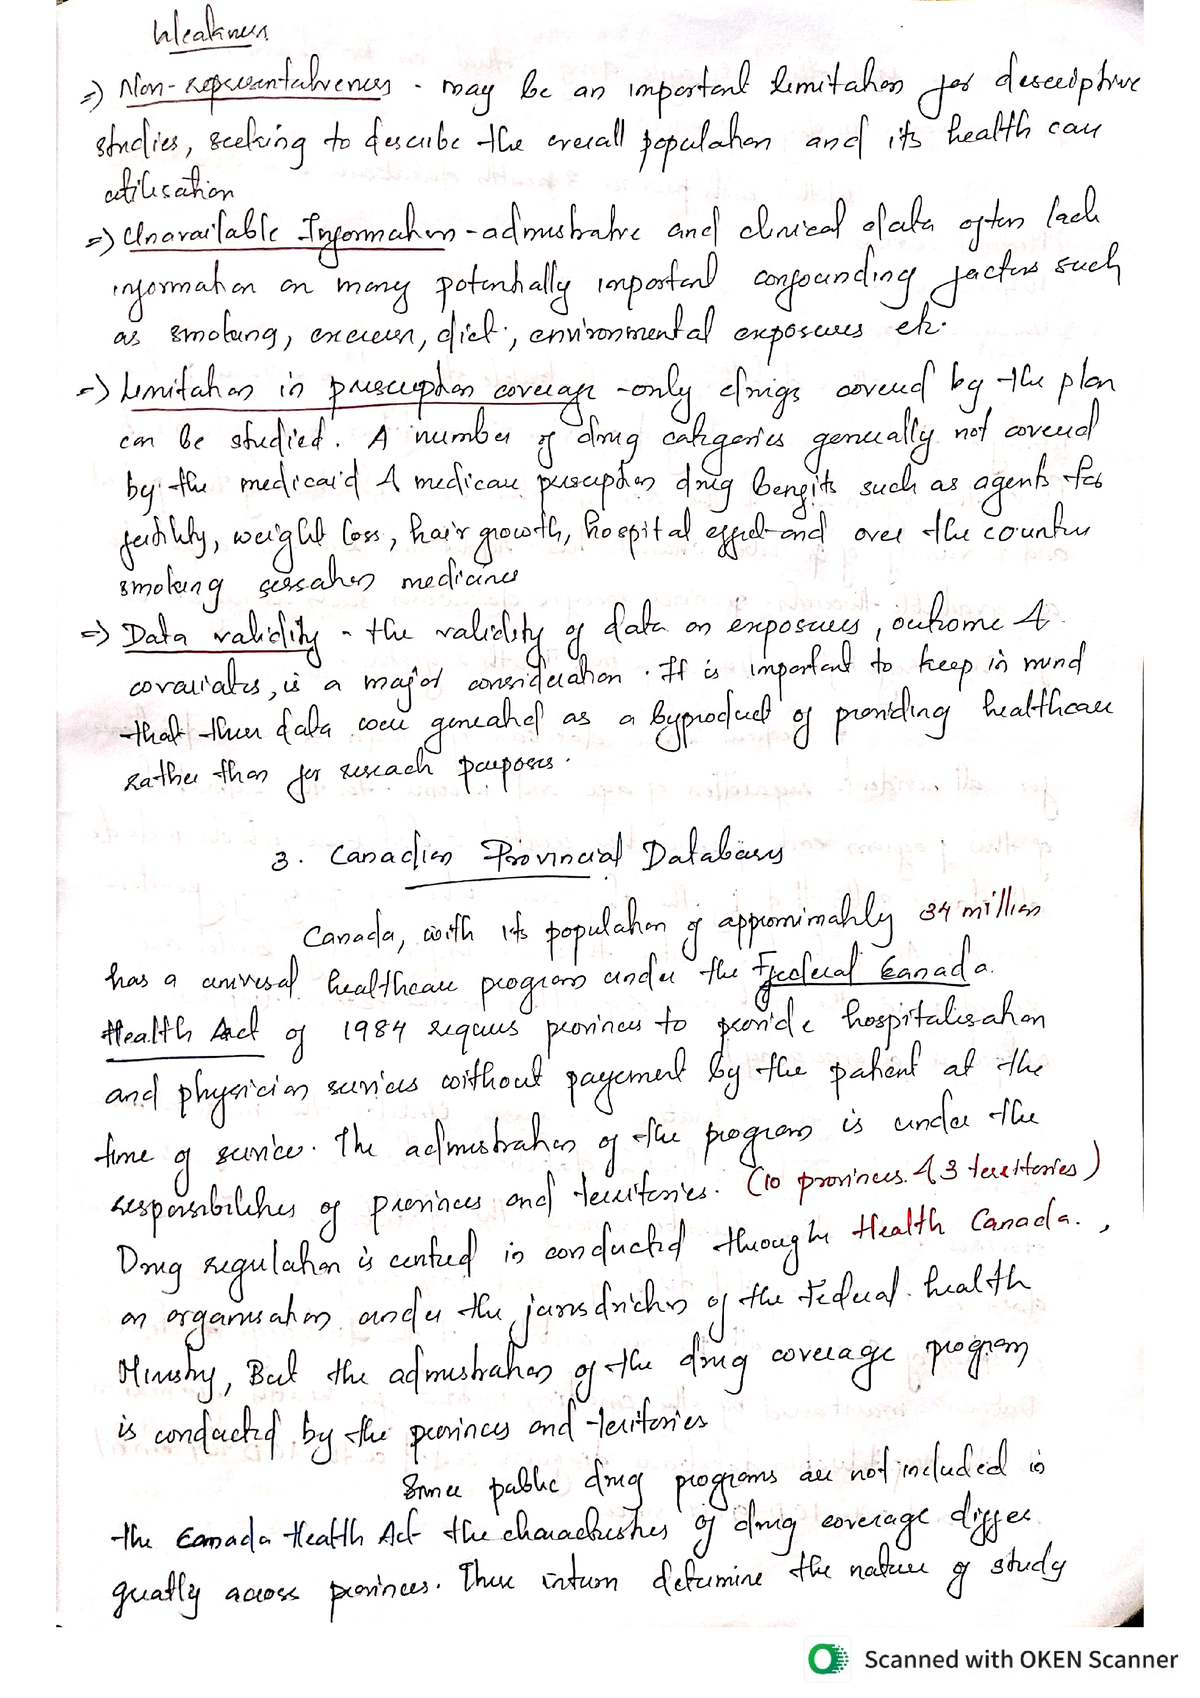 Weakness
=) Non-representativeness - may be an important limitation for descriptive
studies, seeking to describe the overall population and its health care
utilisation
=) Unavailable Information - administrative and clinical data often lack
information on many potentially important confounding factors such
as smoking, exercise, diet, environmental exposures etc.
=) Limitation in prescription coverage - only drugs covered by the plan
can be studied. A number of drug categories generally not covered
by the medicaid & medicare prescription drug benefits such as agents for
fertility, weight loss, hair growth, hospital effect and over the counter
smoking cessation medicines
=) Data validity - the validity of data on exposures, outcome &
covariates, is a major consideration. It is important to keep in mind
that these data were generated as a byproduct of providing healthcare
rather than for reseach purposes.
3. Canadian Provincial Databases
Canada, with its population of approximately 34 million
has a universal healthcare program under the Federal Canada
Health Act of 1984 requires provinces to provide hospitalisation
and physician services without payement by the patient at the
time of service. The administration of the program is under the
responsibilities of provinces and territories. (10 provinces & 3 territories)
Drug regulation is central is conducted through Health Canada.,
an organisation under the jurisdriction of the Federal health
Ministry, But the administration of the drug coverage program
is conducted by the provinces and territories
Since public drug programs are not included in
the Canada Health Act the characteristics of drug coverage differ
greatly across provinces. These inturn determine the nature of study
Scanned with OKEN Scanner